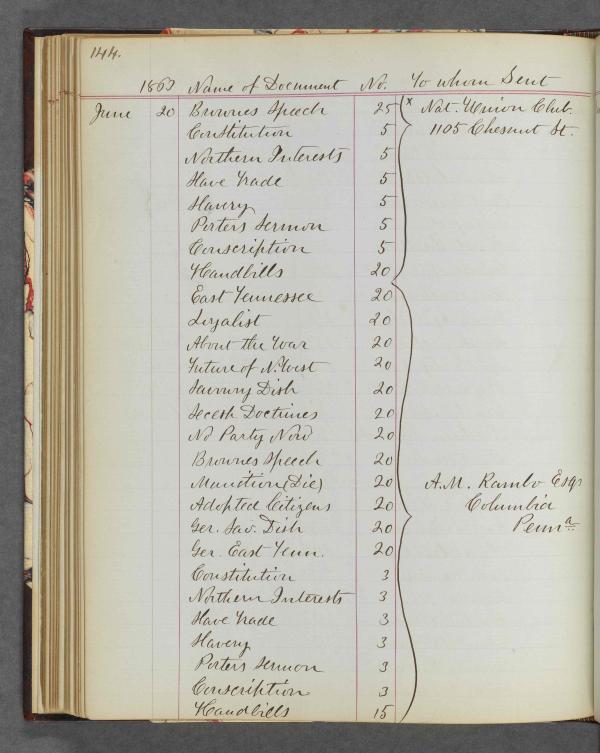 144.
1863 Name of Document No. To whom Sent
June 20 Brownes Speech 25 x Nat. Union Club.
Constitution 5 1105 Chesnut St.
Northern Interests 5
Slave Trade 5
Slavery 5
Porters Sermon 5
Conscription 5
Handbills 20
East Tennessee 20
Loyalist 20
About the War 20
Future of N. West 20
Savoury Dish 20
Secesh Doctrines 20
No Party Now 20
Brownes Speech 20
(Die) 20 A. M. Rambo Esqr
Adopted Citizens 20 Columbia
Ger. Sav. Dish 20 Penna
Ger. East Tenn. 20
Constitution 3
Northern Interests 3
Slave Trade 3
Slavery 3
Porters Sermon 3
Conscription 3
Handbills 15